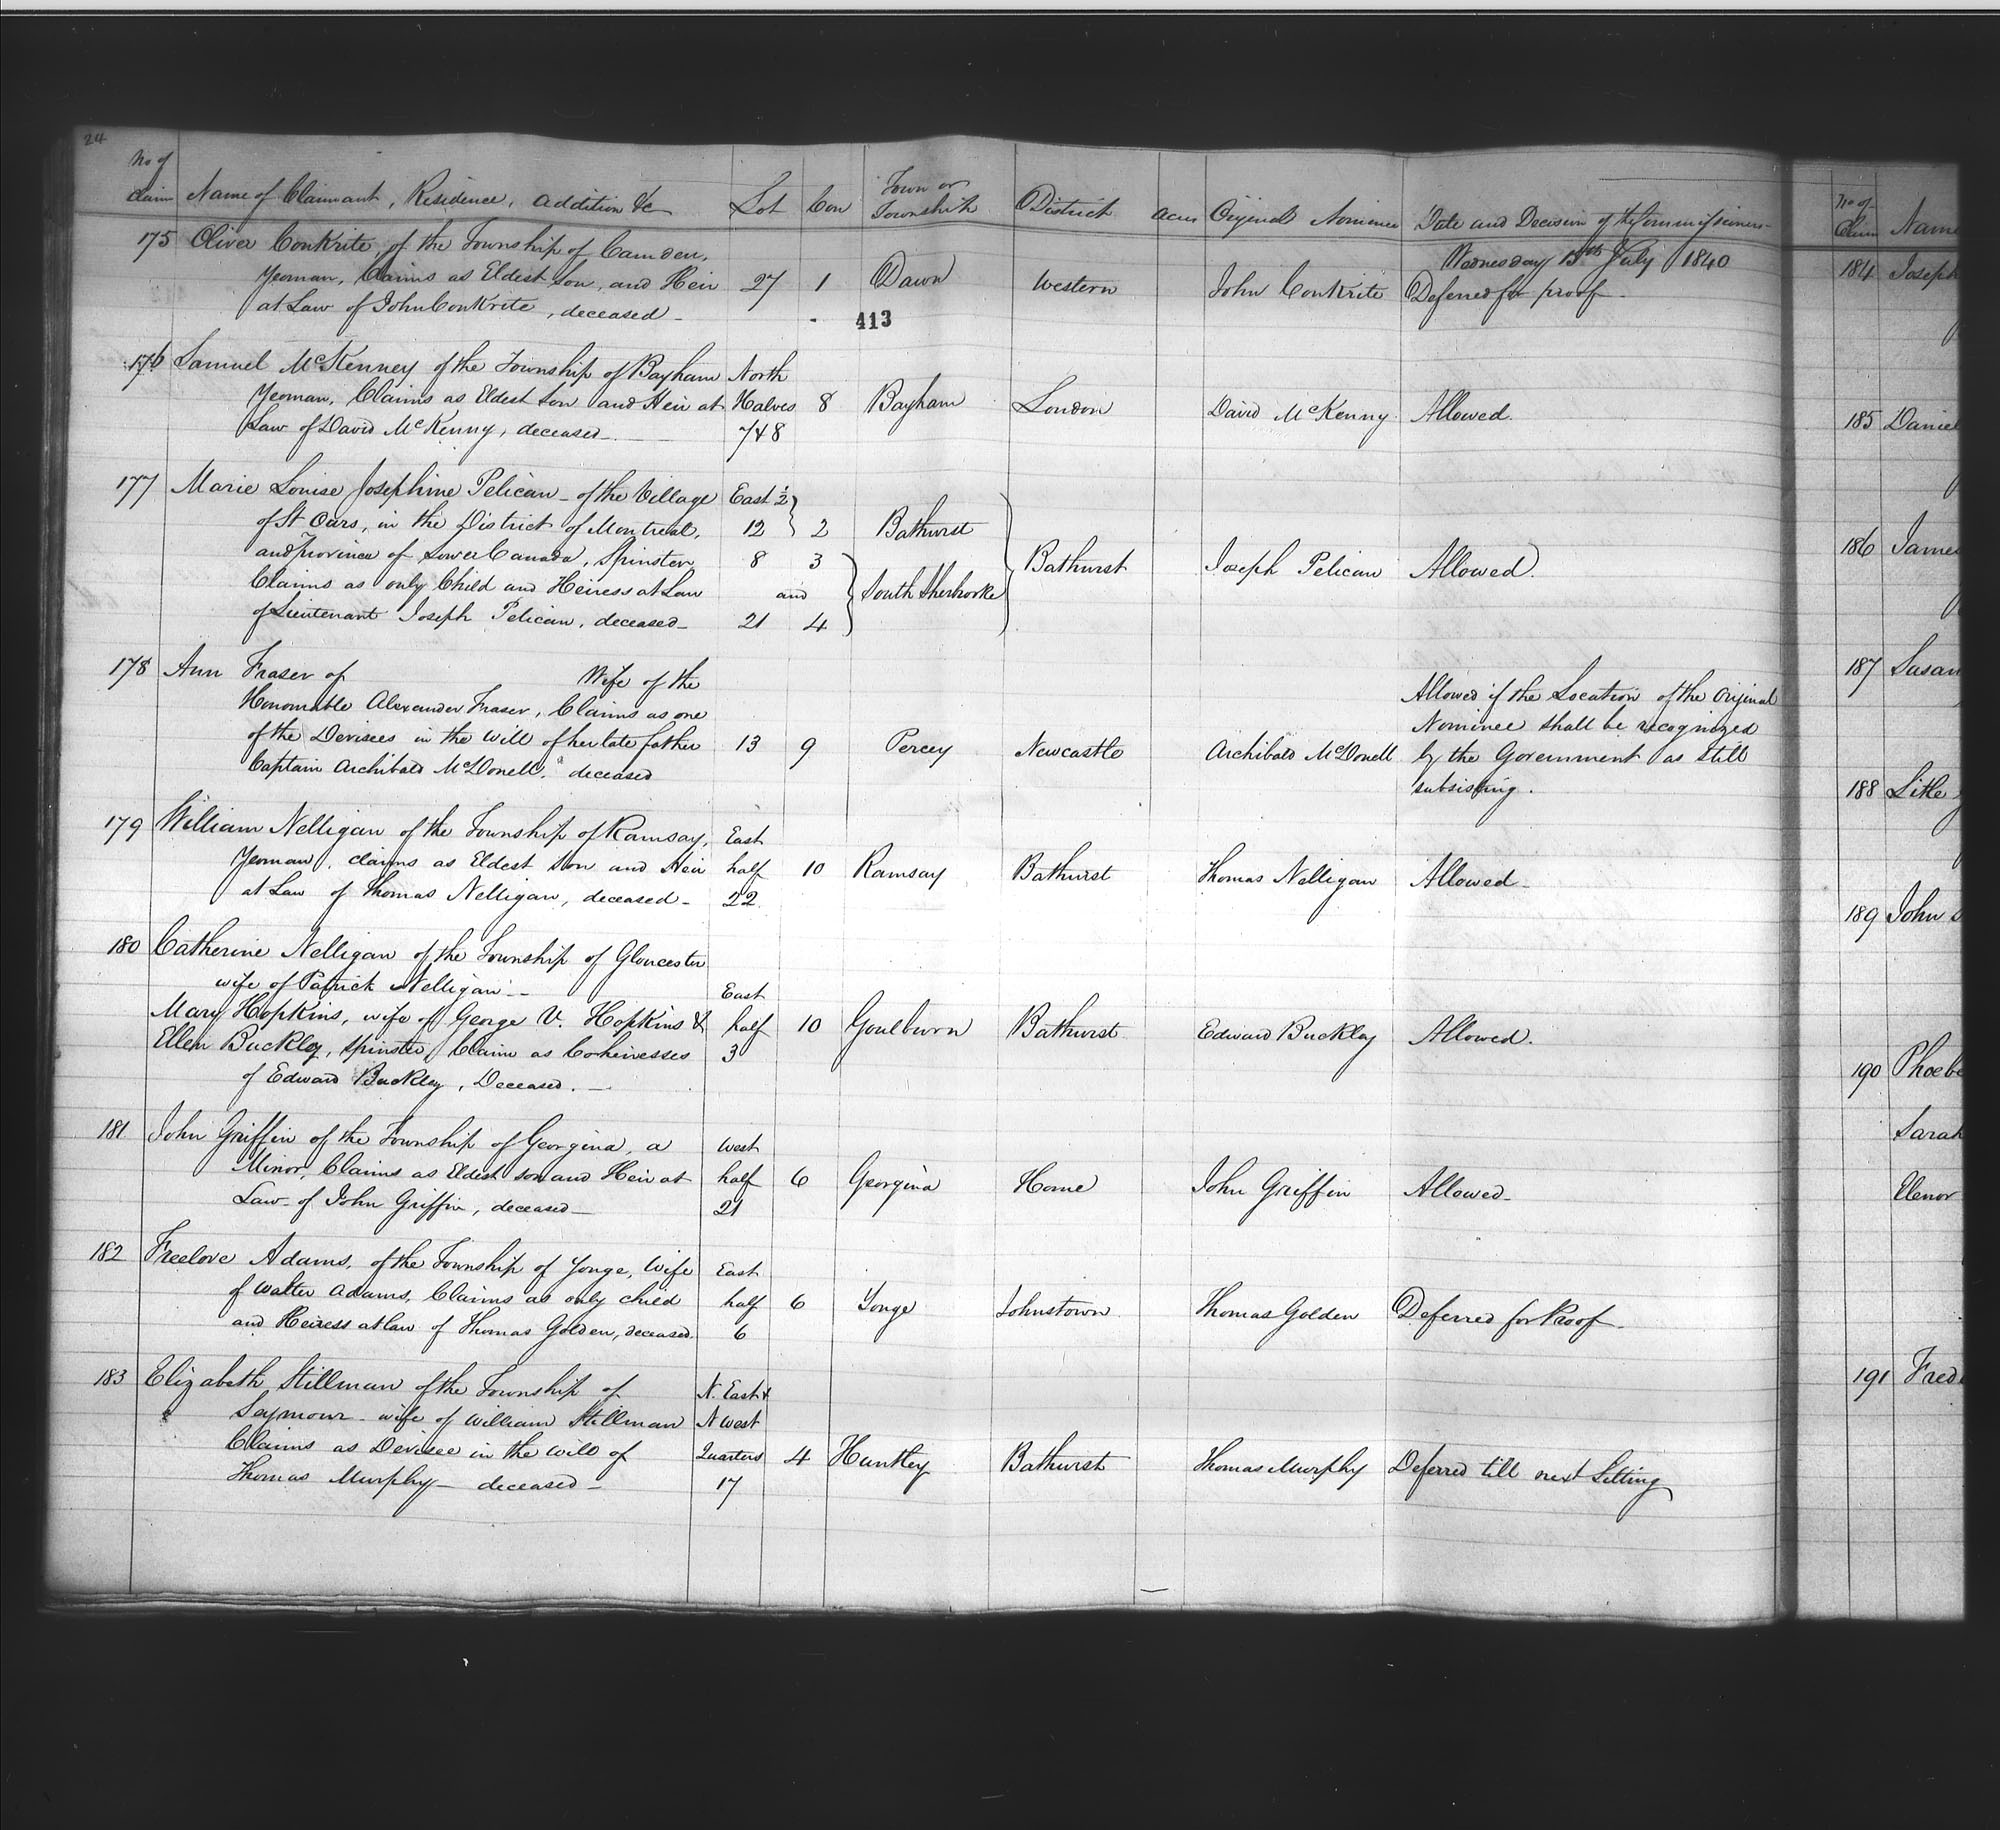 24
No of Claim Name of Claimant, Residence, Addition &c Lot Con Town or Township District Acres Original Nominee Date and Decision of the Commissioners
Wednesday 15th July 1840
175 Oliver Conkrite, of the Township of Camden,
Yeoman, Claims as Eldest Son, and Heir 27 1 Dawn Western John Conkrite Deferred for proof -
at Law of John Conkrite, deceased -
413
176 Samuel McKenney of the Township of Bayham North
Yeoman, Claims as Eldest Son and Heir at Halves 8 Bayham London David McKenny Allowed.
Law of David McKenny, deceased - 7 & 8
177 Marie Louise Josephine Pelican - of the Village East ½
of St Ours, in the District of Montreal, 12 2 Bathurst
and Province of Lower Canada, Spinster, 8 3 Bathurst Joseph Pelican Allowed.
Claims as only Child and Heiress at Law and South Sherbrooke
of Lieutenant Joseph Pelican, deceased - 21 4
178 Ann Fraser of Wife of the
Honourable Alexander Fraser, Claims as one
of the Devisees in the Will of her late father 13 9 Percey Newcastle Archibald McDonell
Captain Archibald McDonell, deceased
Allowed if the Location of the Original
Nominee shall be recognized
by the Government as still
subsisting.
179 William Nelligan of the Township of Ramsay, East
Yeoman, claims as Eldest Son and Heir half 10 Ramsay Bathurst Thomas Nelligan Allowed -
at Law of Thomas Nelligan, deceased - 22
180 Catherine Nelligan of the Township of Gloucester
wife of Patrick Nelligan - East
Mary Hopkins, wife of George V. Hopkins & half 10 Goulburn Bathurst Edward Buckley Allowed.
Ellen Buckley, Spinster, Claim as Coheiresses 3
of Edward Buckley, Deceased. -
181 John Griffin of the Township of Georgina, a West
Minor, Claims as Eldest son and Heir at half 6 Georgina Home John Griffin Allowed -
Law - of John Griffin, deceased - 21
182 Freelove Adams, of the Township of Yonge, Wife East
of Walter Adams, Claims as only child half 6 Yonge Johnstown Thomas Golden Deferred for Proof -
and Heiress at law of Thomas Golden, deceased. 6
183 Elizabeth Stillman of the Township of N. East &
Seymour - wife of William Stillman N West
Claims as Devisee in the Will of Quarters 4 Huntley Bathurst Thomas Murphy Deferred till next Sitting
Thomas Murphy - deceased - 17
No of Claim Name
184 Joseph
185 Daniel
186 James
187 Susan
188
189 John
190 Phoebe
Sarah
Elenor
191